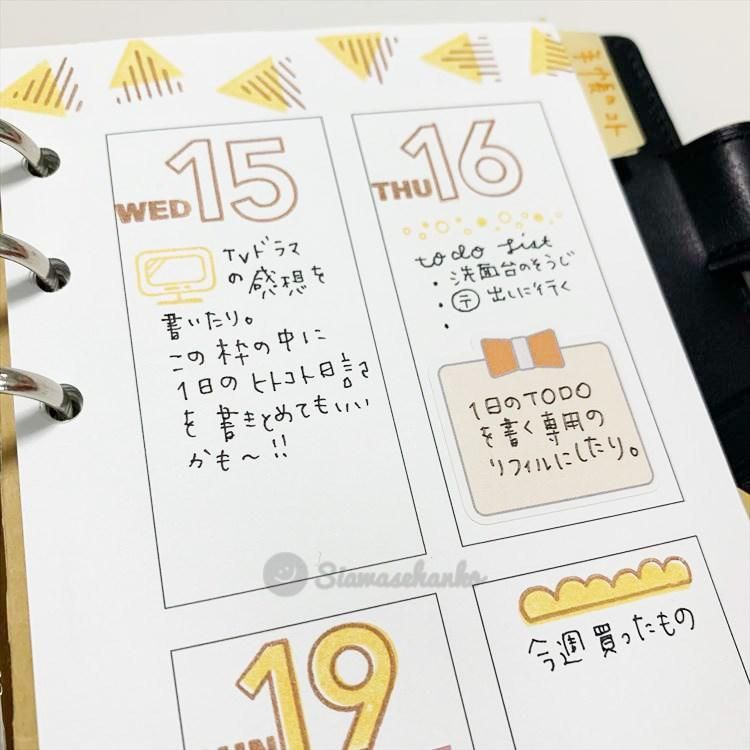 手帳のコト
WED 15
TVドラマ
の感想を
書いたり。
この枠の中に
1日のヒトコト日記
を書きとめてもいい
かも〜!!
THU 16
to do list
・洗面台のそうじ
・〒出しに行く
・
1日のTODO
を書く専用の
リフィルにしたり。
Siawasehanko
SUN 19
今週買ったもの